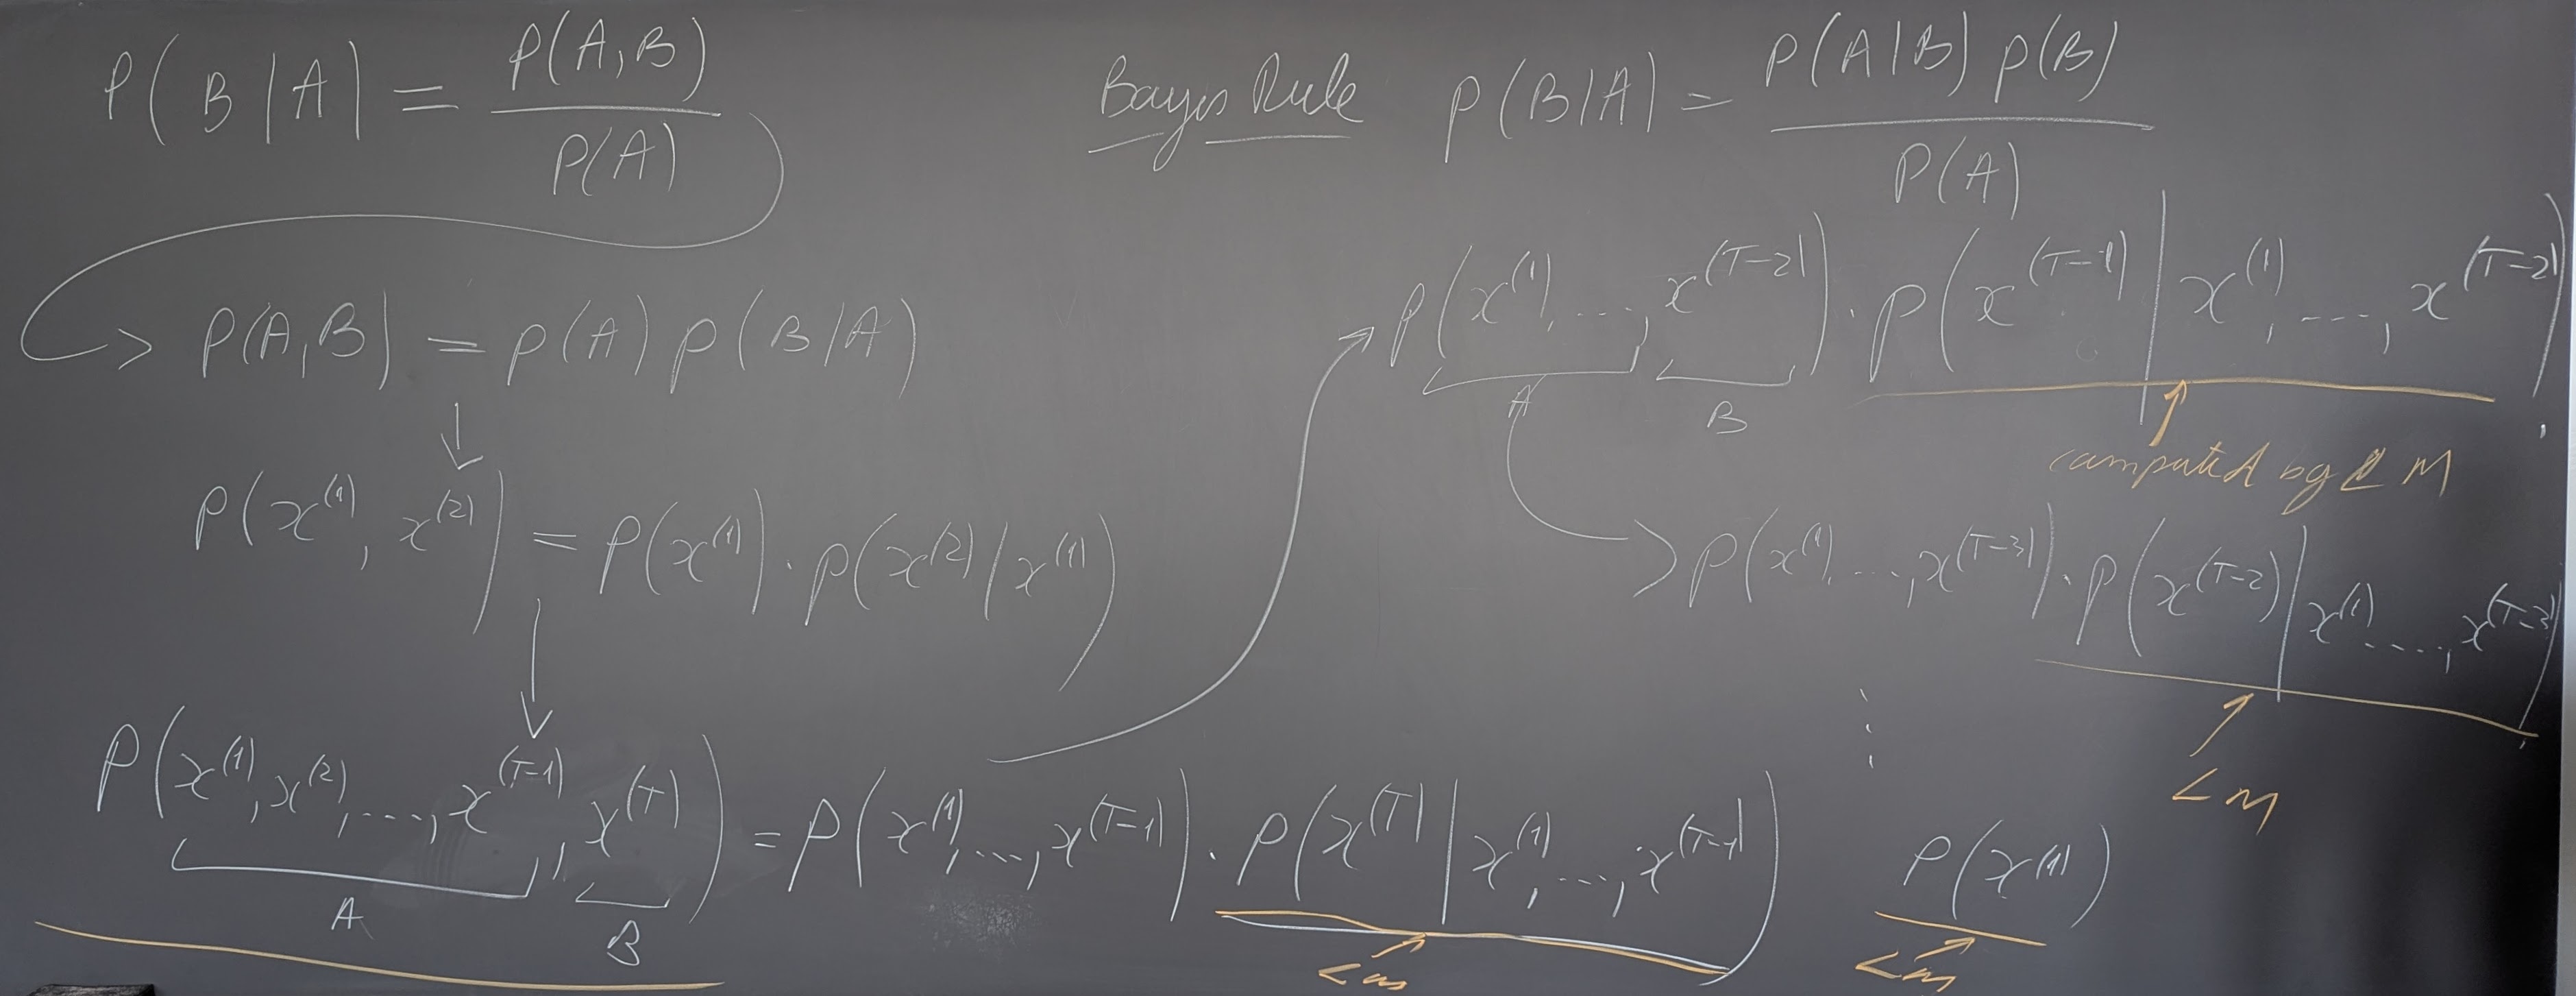 P(B|A) = P(A,B) / P(A)
Bayes Rule P(B|A) = P(A|B) P(B) / P(A)
> P(A,B) = P(A) P(B|A)
P(x^(1), x^(2)) = P(x^(1)) · P(x^(2) | x^(1))
P(x^(1), x^(2), ..., x^(T-1), x^(T)) = P(x^(1), ..., x^(T-1)) · P(x^(T) | x^(1), ..., x^(T-1))
A B
LM
P(x^(1), ..., x^(T-2)) · P(x^(T-1) | x^(1), ..., x^(T-2))
A B
computed by LM
> P(x^(1), ..., x^(T-3)) · P(x^(T-2) | x^(1), ..., x^(T-3))
LM
⋮
P(x^(1))
LM